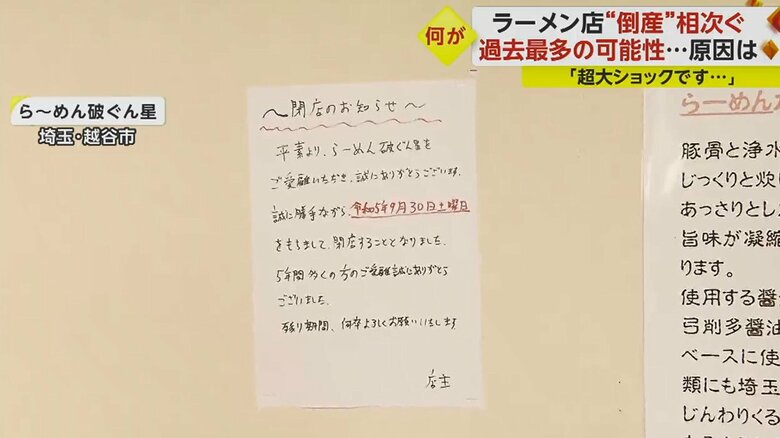 何が
ラーメン店“倒産”相次ぐ
過去最多の可能性…原因は
「超大ショックです…」
ら〜めん破ぐん星
埼玉・越谷市
〜閉店のお知らせ〜
平素より、らーめん破ぐん星を
ご愛顧いただき、誠にありがとうございます。
誠に勝手ながら、令和5年9月30日土曜日
をもちまして、閉店することとなりました。
5年間多くの方のご愛顧誠にありがとう
ございました。
残り期間、何卒よろしくお願いいたします
店主
らーめん
豚骨と浄水
じっくりと炊
あっさりとし
旨味が凝縮
ります。
使用する醤
弓削多醤油
ベースに使
類にも埼玉
じんわりくる